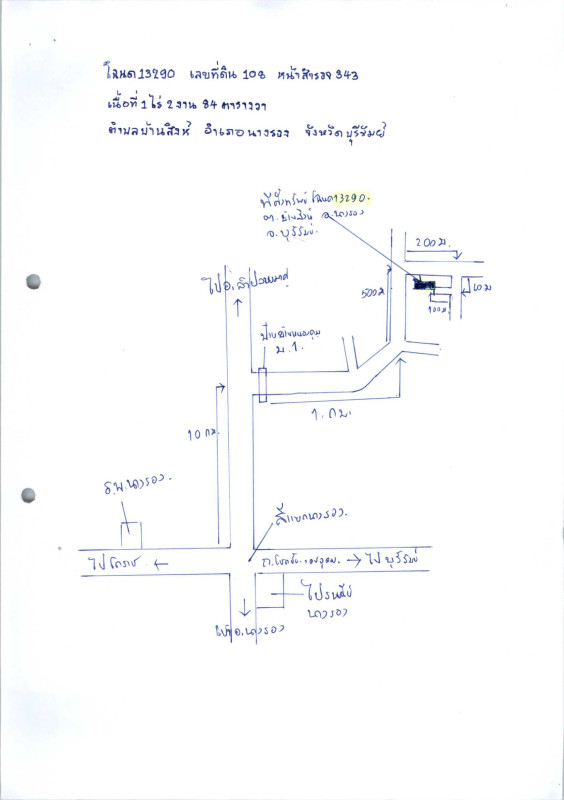 โฉนด 13290 เลขที่ดิน 108 หน้าสำรวจ 343
เนื้อที่ 1 ไร่ 2 งาน 84 ตารางวา
ตำบลบ้านสิงห์ อำเภอนางรอง จังหวัดบุรีรัมย์
ที่ตั้งทรัพย์ โฉนด 13290.
ต. บ้านสิงห์ อ.นางรอง
จ. บุรีรัมย์.
200 ม.
ไปอ.ลำปลายมาศ
500 ม
10 ม
100 ม.
ม. 1.
1. กม.
10 กม.
ร.พ.นางรอง.
สี่แยกนางรอง.
ไปโคราช
ถ.โชคชัย-เดชอุดม.
ไปบุรีรัมย์
นางรอง
ไปอ.นางรอง